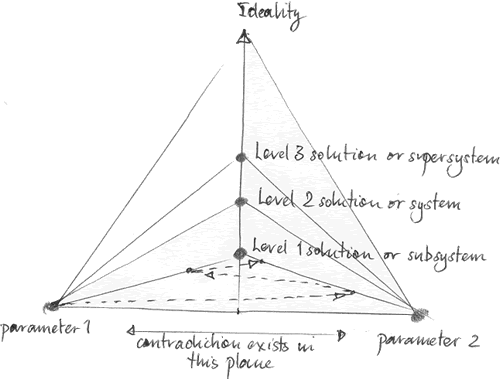 Ideality
Level 3 solution or supersystem
Level 2 solution or system
Level 1 solution or subsystem
parameter 1
contradiction exists in
this plane
parameter 2